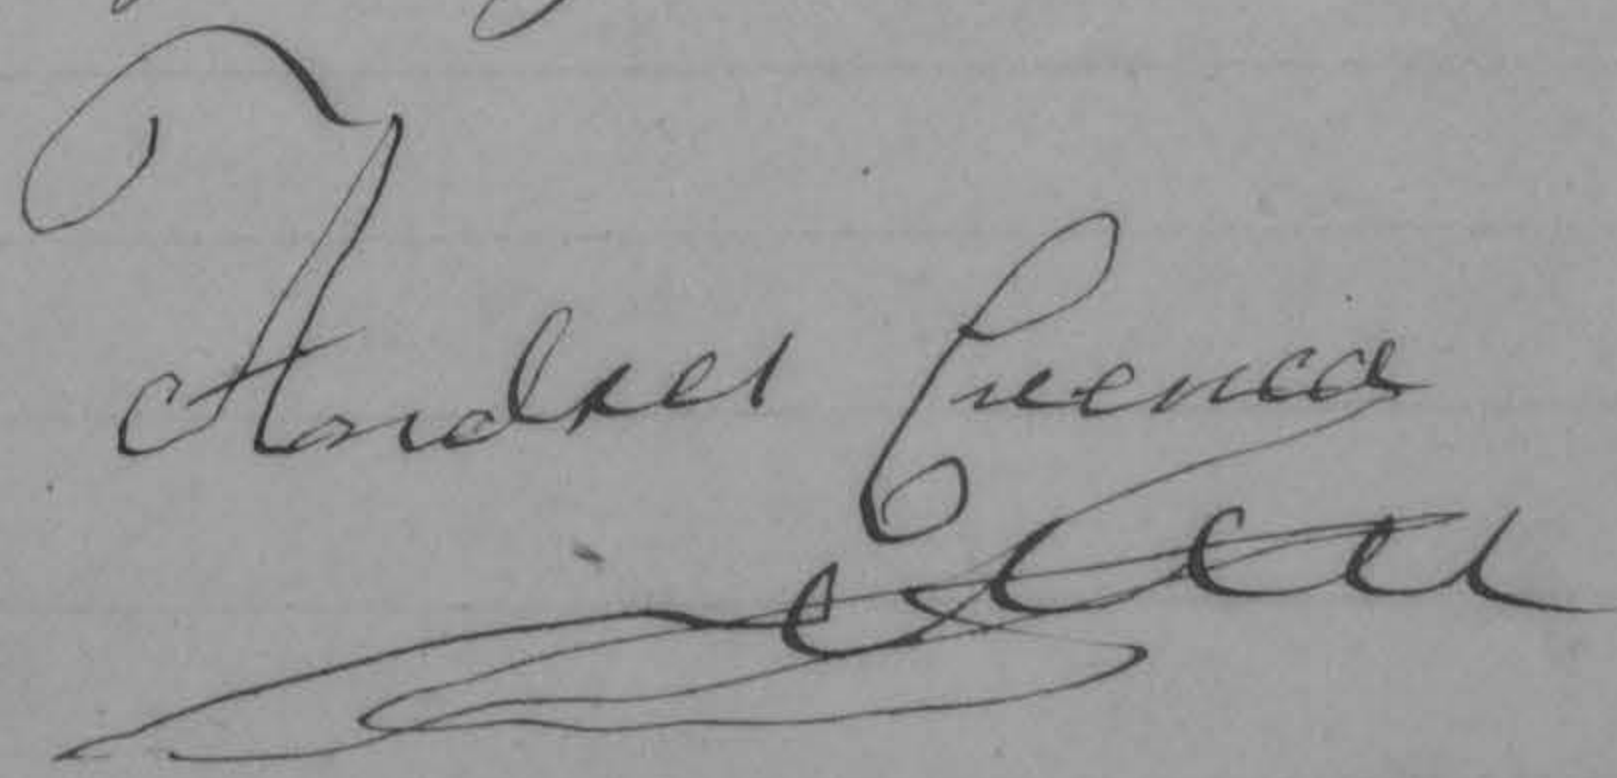 Andres Cuenca